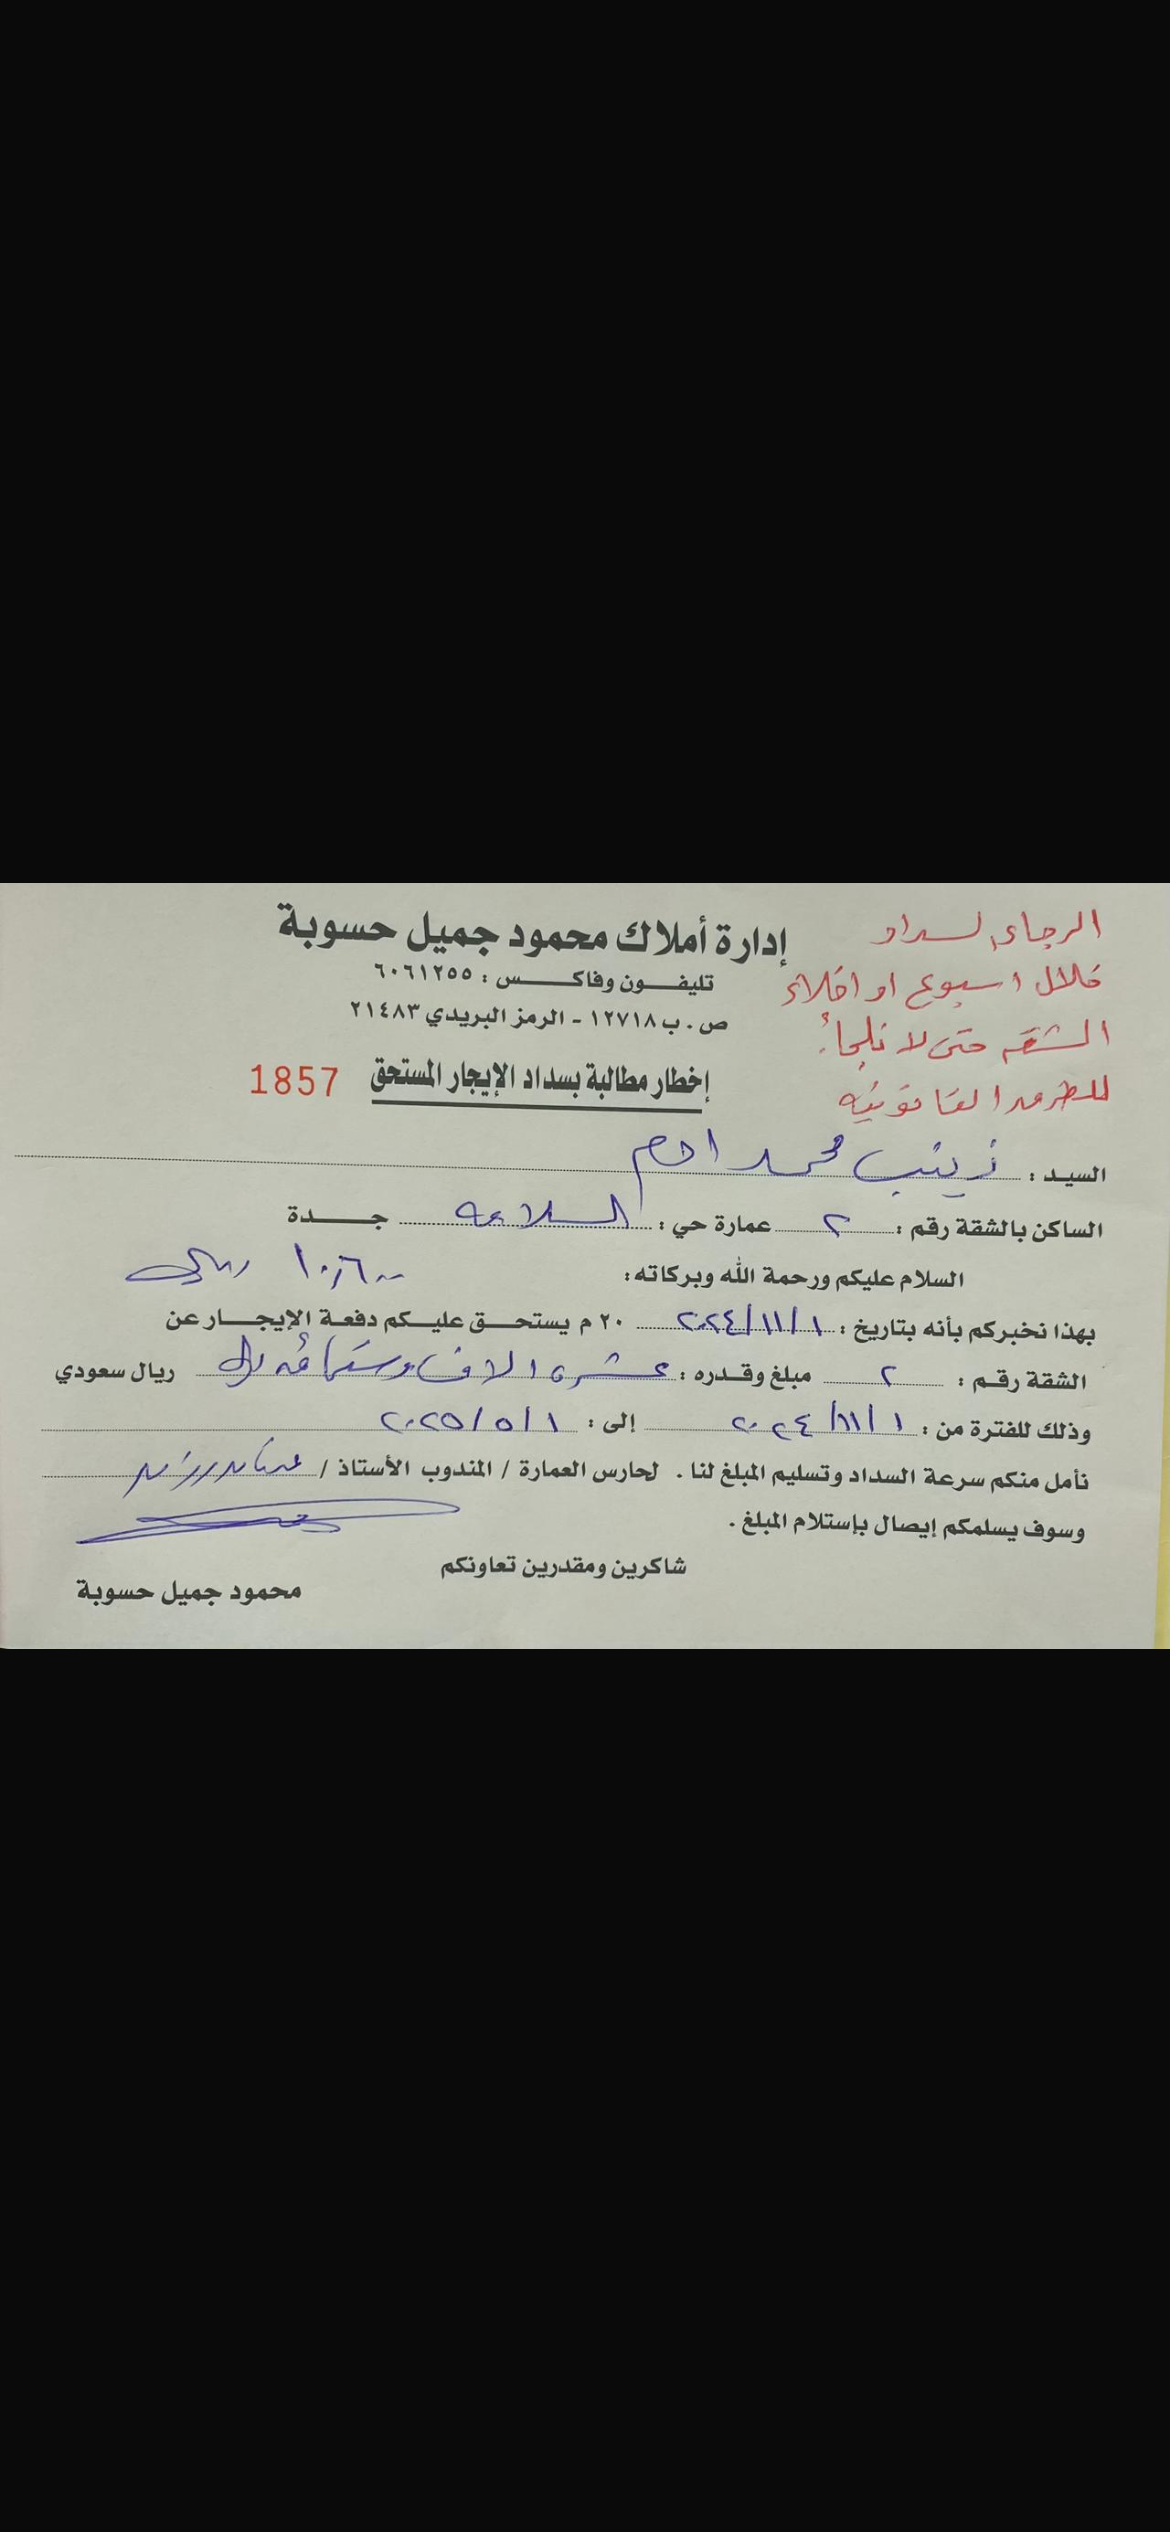 إدارة أملاك محمود جميل حسوبة
تليفـــون وفاكـــــس : ٦٠٦١٢٥٥
ص . ب ١٢٧١٨ - الرمز البريدي ٢١٤٨٣
إخطار مطالبة بسداد الإيجار المستحق 1857
الرجاء السداد
خلال اسبوع او اخلاء
الشقه حتى لا نلجأ
للطرق القانونيه
السيـد : زينب محمد ادم
الساكن بالشقة رقم : ٢ عمارة حي : السلامه جـــــدة
السلام عليكم ورحمة الله وبركاته : ١٠٦٠٠ ريال
بهذا نخبركم بأنه بتاريخ : ٢٠٢٤/١١/١ ٢٠ م يستحـــق عليــكم دفعـة الإيجـــار عن
الشقة رقـم : ٢ مبلغ وقـدره : عشرة الاف وستمائه ريال ريال سعودي
وذلك للفترة من : ٢٠٢٤/١١/١ إلى : ٢٠٢٥/٥/١
نأمل منكم سرعة السداد وتسليم المبلغ لنا . لحارس العمارة / المندوب الأستاذ /
وسوف يسلمكم إيصال بإستلام المبلغ .
شاكرين ومقدرين تعاونكم
محمود جميل حسوبة